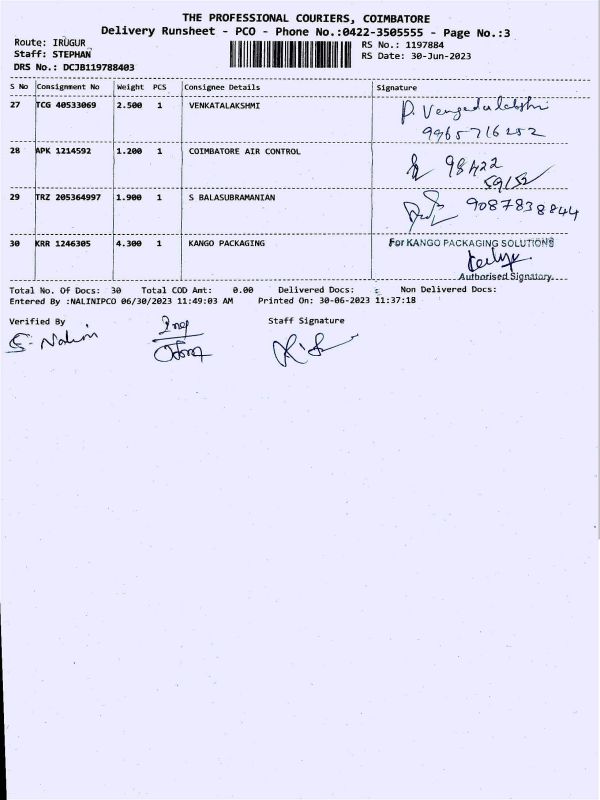 THE PROFESSIONAL COURIERS, COIMBATORE
Delivery Runsheet - PCO - Phone No.:0422-3505555 - Page No.:3
Route: IRUGUR
Staff: STEPHAN
DRS No.: DCJB119788403
RS No.: 1197884
RS Date: 30-Jun-2023
S No Consignment No Weight PCS Consignee Details Signature
27 TCG 40533069 2.500 1 VENKATALAKSHMI
9965716252
28 APK 1214592 1.200 1 COIMBATORE AIR CONTROL
98422
59152
29 TRZ 205364997 1.900 1 S BALASUBRAMANIAN 9087838844
30 KRR 1246305 4.300 1 KANGO PACKAGING For KANGO PACKAGING SOLUTIONS
Authorised Signatory
Total No. Of Docs: 30 Total COD Amt: 0.00 Delivered Docs: Non Delivered Docs:
Entered By :NALINIPCO 06/30/2023 11:49:03 AM Printed On: 30-06-2023 11:37:18
Verified By Staff Signature
S. Nalini